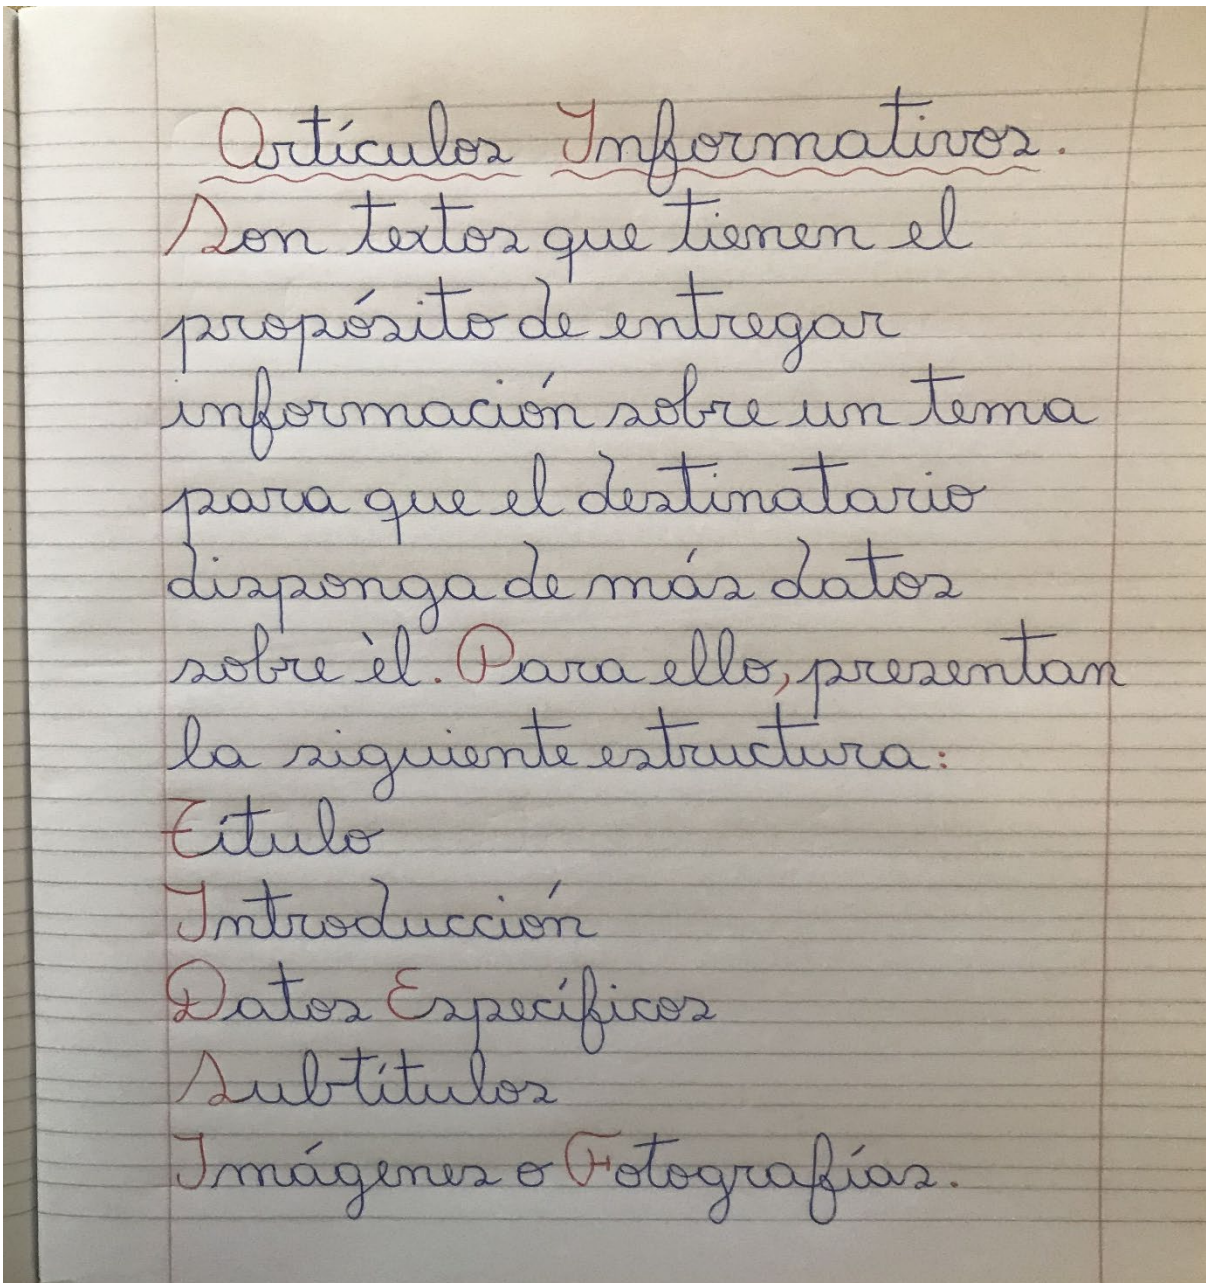 Artículos Informativos.
Son textos que tienen el
propósito de entregar
información sobre un tema
para que el destinatario
disponga de más datos
sobre èl. Para ello, presentan
la siguiente estructura:
Título
Introducción
Datos Específicos
Subtítulos
Imágenes o Fotografías.